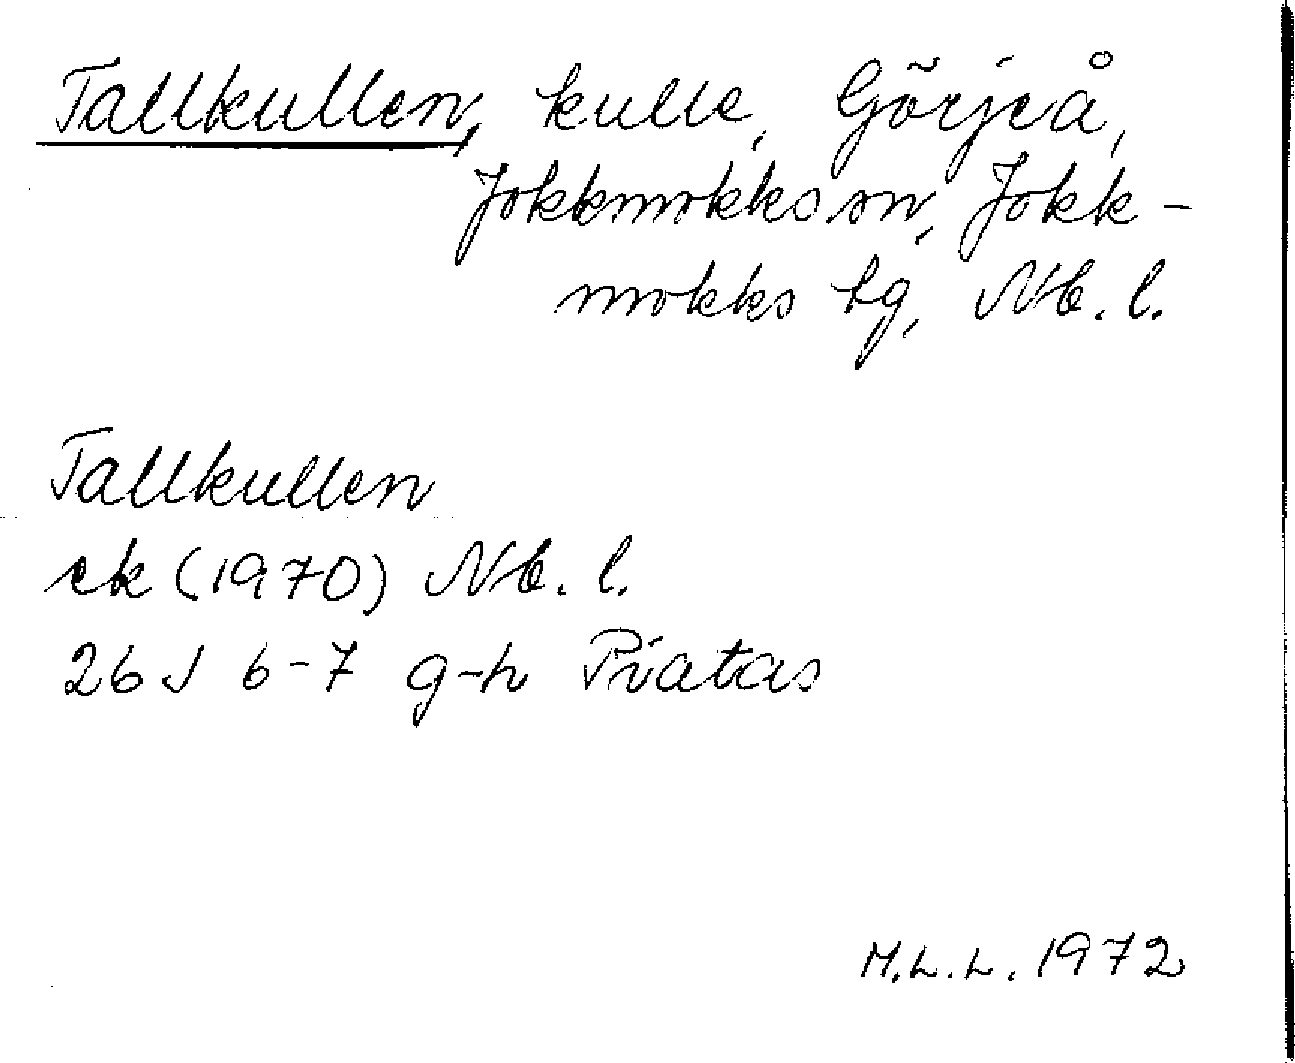 Tallkullen, kulle, Görjeå,
Jokkmokks sn, Jokk-
mokks hg, Nb. l.
Tallkullen
ek (1970) Nb. l.
26 J 6-7 g-h Piatas
M.L.L. 1972